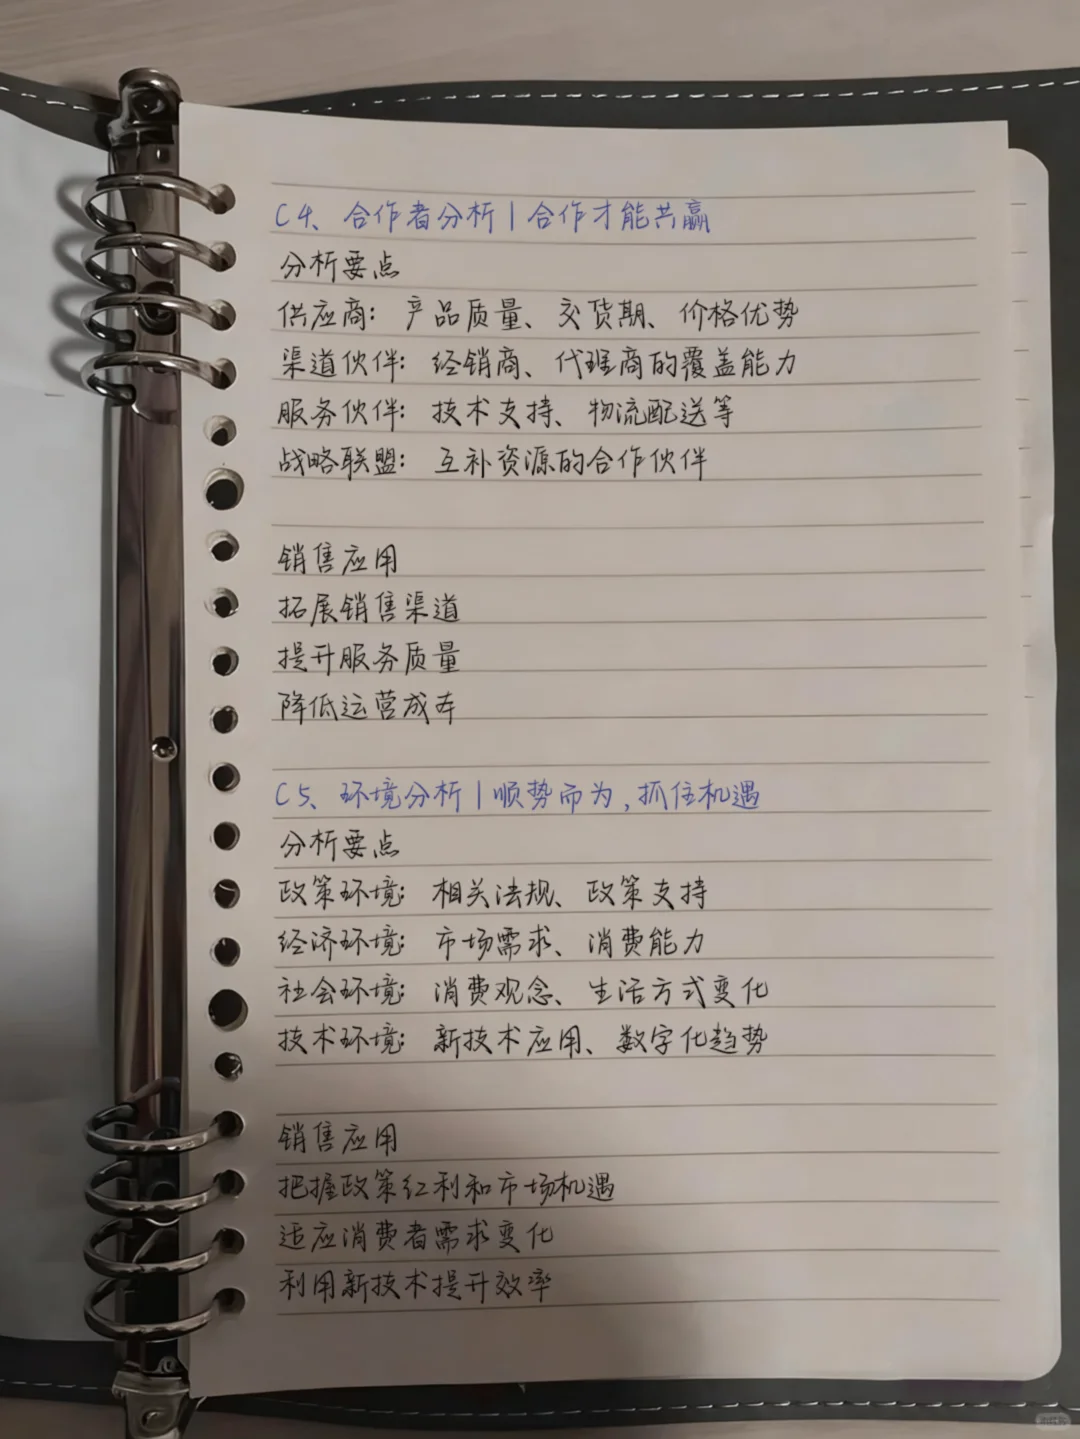 C4、合作者分析|合作才能共赢
分析要点
供应商: 产品质量、交货期、价格优势
渠道伙伴: 经销商、代理商的覆盖能力
服务伙伴: 技术支持、物流配送等
战略联盟: 互补资源的合作伙伴
销售应用
拓展销售渠道
提升服务质量
降低运营成本
C5、环境分析|顺势而为,抓住机遇
分析要点
政策环境: 相关法规、政策支持
经济环境: 市场需求、消费能力
社会环境: 消费观念、生活方式变化
技术环境: 新技术应用、数字化趋势
销售应用
把握政策红利和市场机遇
适应消费者需求变化
利用新技术提升效率